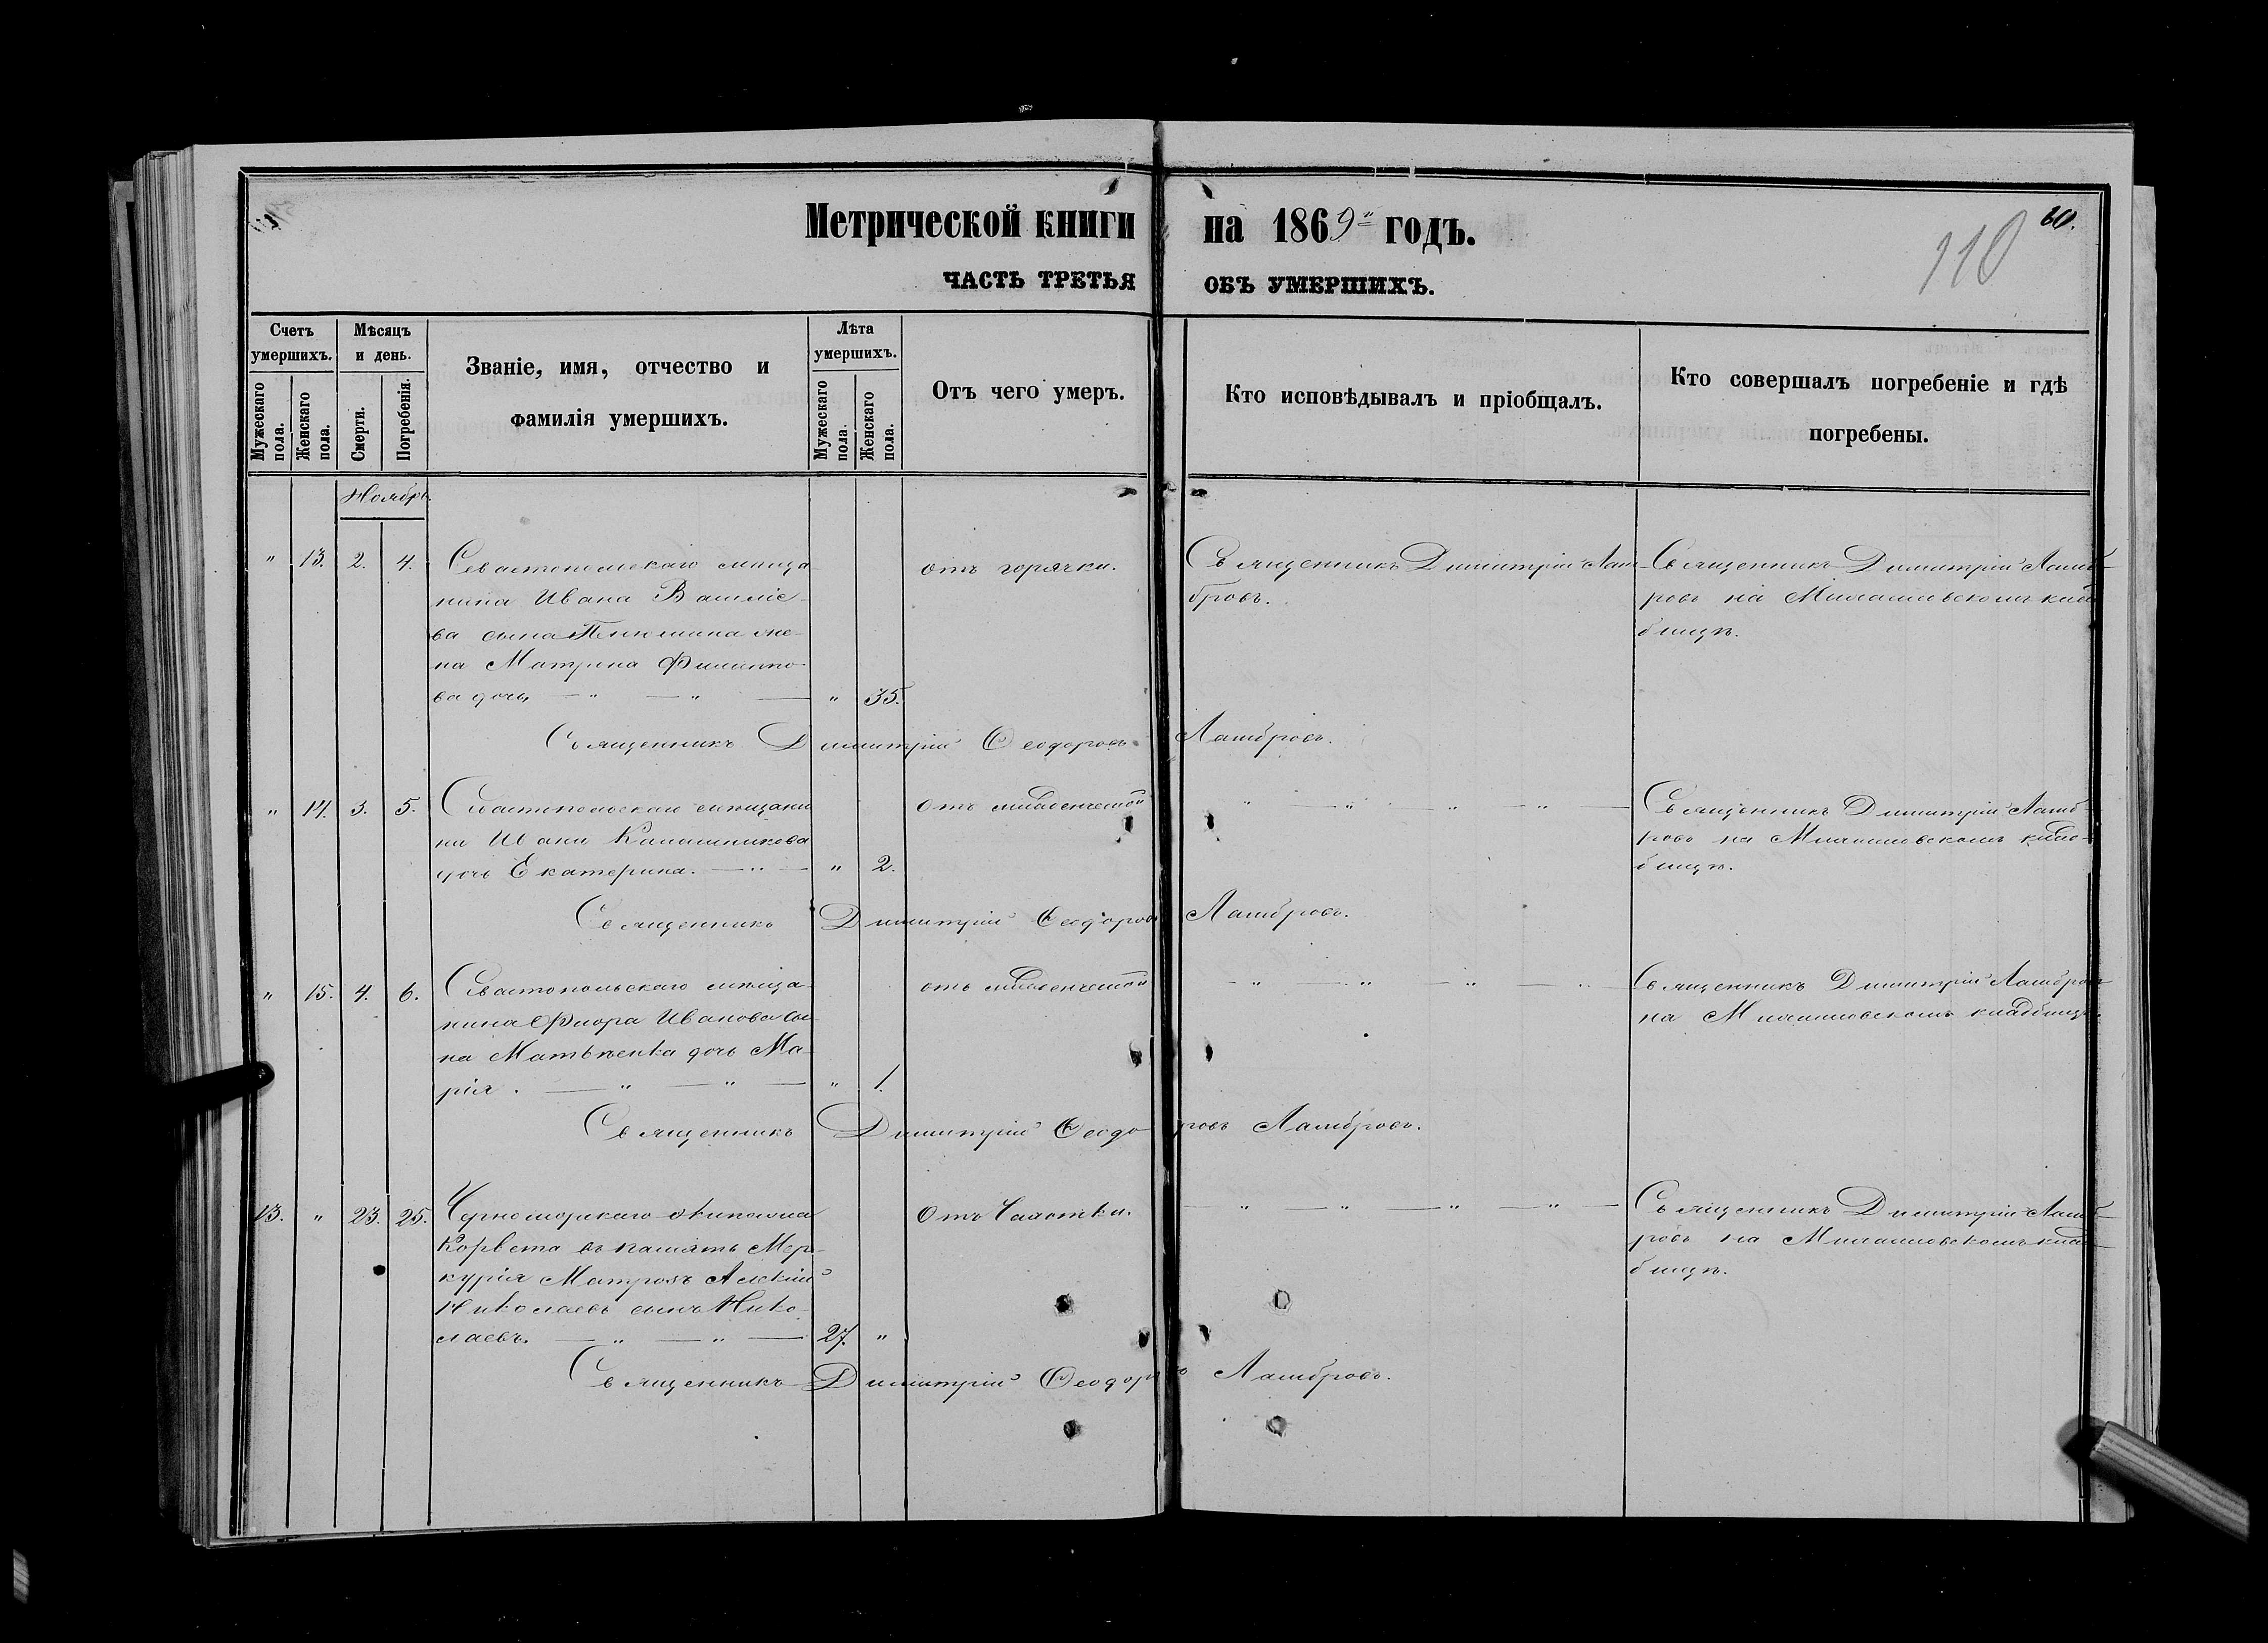 Метрической книги на 1869 годъ.
110
60.
ЧАСТЬ ТРЕТЬЯ ОБЪ УМЕРШИХЪ.
Счетъ умершихъ.
Мужескаго пола.
Женскаго пола.
Мѣсяцъ и день.
Смерти.
Погребенія.
Званіе, имя, отчество и
фамилія умершихъ.
Лѣта умершихъ.
Мужескаго пола.
Женскаго пола.
Отъ чего умеръ.
Кто исповѣдывалъ и пріобщалъ.
Кто совершалъ погребеніе и гдѣ
погребены.
Ноябрь
" 13. 2. 4. Севастопольскаго мѣща
нина Ивана Василіе-
ва сына же-
на Матрина Филиппо-
ва дочь " 35.
отъ горячки.
Священникъ Димитрій Лам-
бровъ.
Священникъ Димитрій Ламб-
ровъ на кла
бищѣ.
Священникъ Димитрій Феодоровъ Ламбровъ.
" 14. 3. 5. Севастопольскаи мѣщани
на Ивана Калашникова
дочь Екатерина. " 2.
отъ младенческой
Священникъ Димитрій Ламб-
ровъ на кла-
бищѣ.
Священникъ Димитрій Феодоровъ Ламбровъ.
" 15. 4. 6. Севастопольскаго мѣща-
нина Флора Иванова сы-
на Матвѣенка дочь Ма-
рія. " 1.
отъ младенческой
Священникъ Димитрій Ламбровъ
на кладбищѣ.
Священникъ Димитрій Феодо ровъ Ламбровъ.
13. " 23. 25. Черноморскаго Экипажа
Корвета въ память Мер-
курія Матрозъ Алексій
Николаевъ сынъ Нико-
лаевъ. 27. "
Отъ Чахотки.
Священникъ Димитрій Ламб-
ровъ на клад
бищѣ.
Священникъ Димитрій Феодоровъ Ламбровъ.